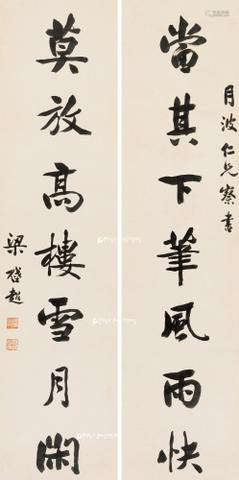 月波仁兄察書
當其下筆風雨快
莫放高樓雪月閑
梁啓超